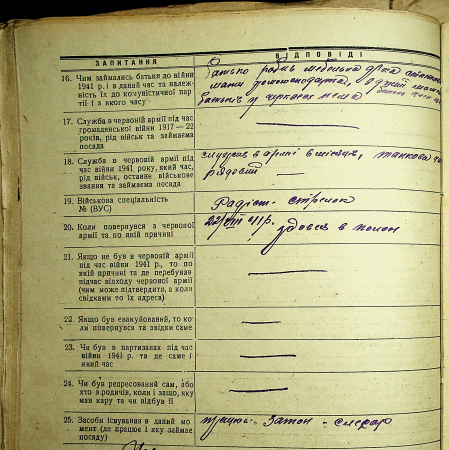 ЗАПИТАННЯ
ВІДПОВІДІ
16. Чим займались батьки до війни
1941 р. і в даний час та належ-
ність їх до комуністичної пар-
тії і з якого часу
Батько робив
мати домогосподарка,
батьків у
17. Служба в червоній армії під час
громадянської війни 1917 — 22
років, рід військ та займаєма
посада
—
18. Служба в червоній армії під
час війни 1941 року, який час,
рід військ, останнє військове
звання та займаєма посада
служив в армії танкова
рядовий —
19. Військова спеціальність
№ (ВУС)
Радіст - стрілок
20. Коли повернувся з червоної
армії та по якій причині
22/VIII 41 р. здавсь в полон
21. Якщо не був в червоній армії
під час війни 1941 р., то по
якій причині та де перебував
підчас відходу червоної армії
(чим може підтвердити, а коли
свідками то їх адреса)
—
22. Якщо був евакуйований, то ко-
ли повернувся та звідки саме
—
23. Чи був в партизанах під час
війни 1941 р. та де саме і
який час
—
24. Чи був репресований сам, або
хто з родичів, коли і защо, яку
мав кару та чи відбув її
—
25. Засоби існування в даний мо-
мент (де працює і яку займає
посаду)
працює - Затон - слюсар